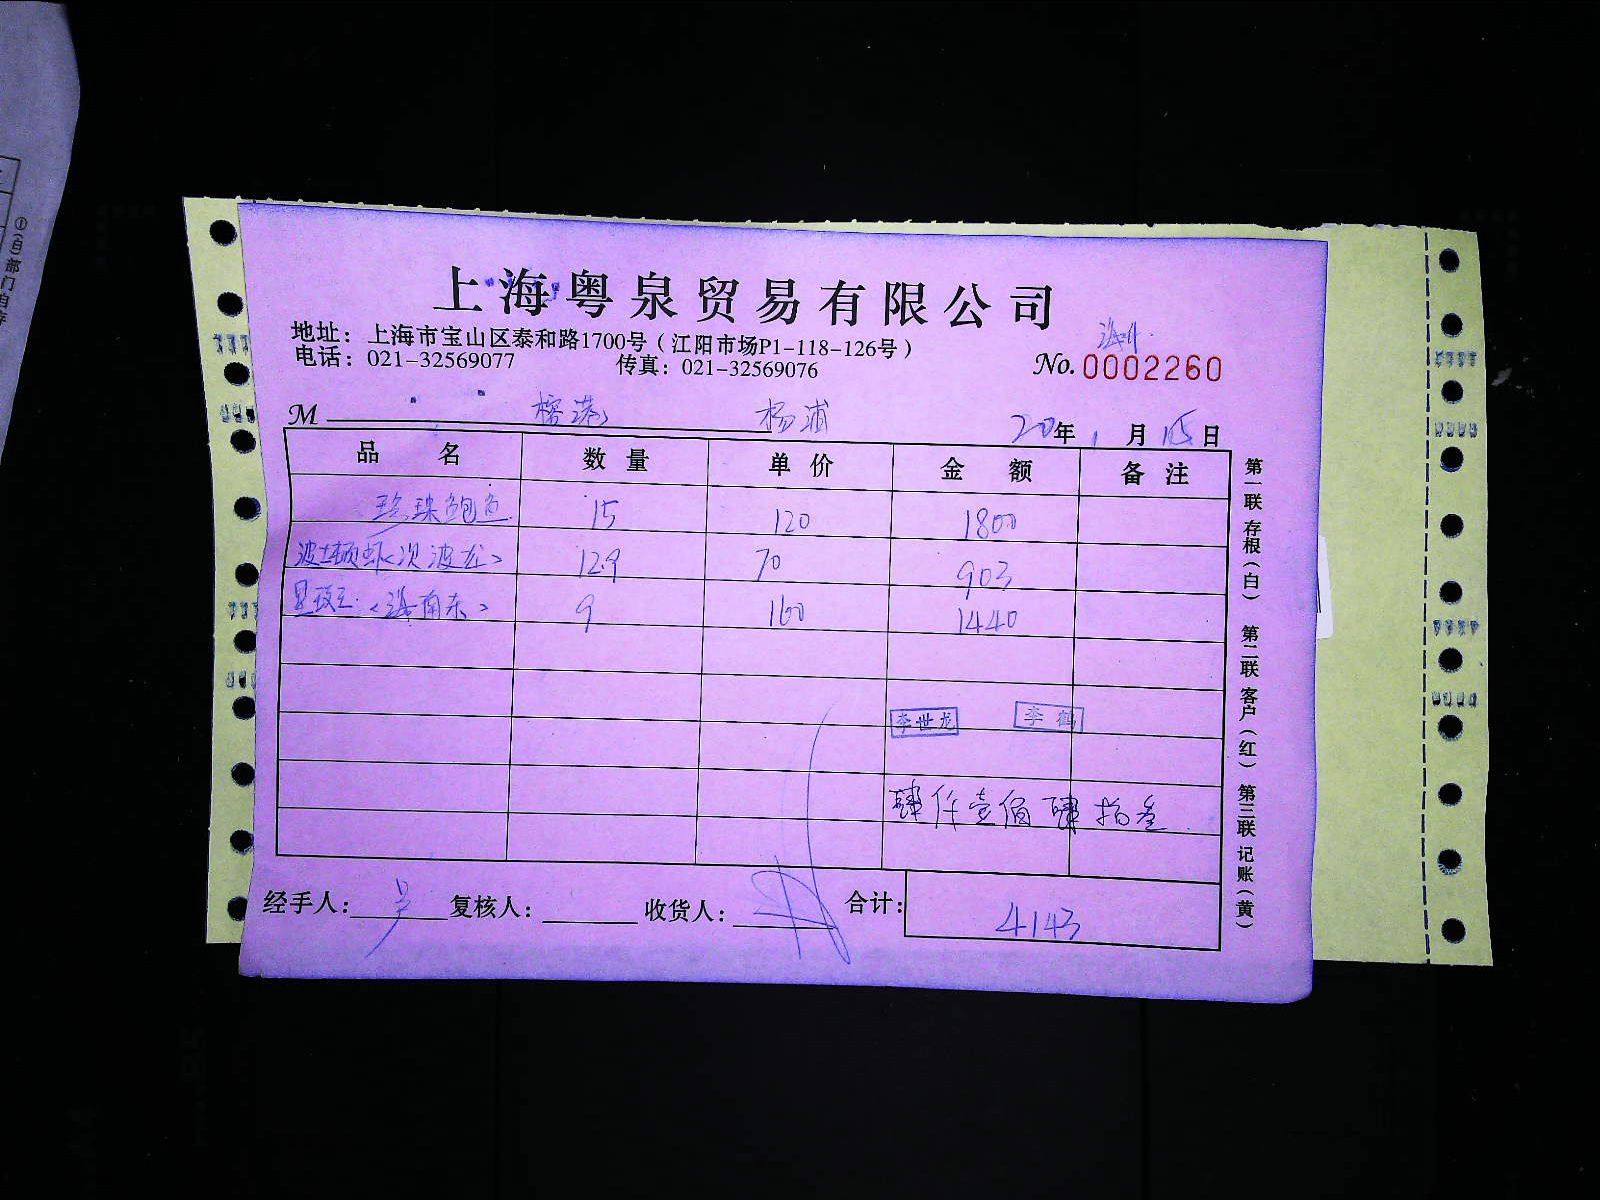 上海粤泉贸易有限公司
地址：上海市宝山区泰和路1700号（江阳市场P1-118-126号）
电话：021-32569077 传真：021-32569076
No. 0002260
M 榕港 杨浦 20年1月15日
品名 数量 单价 金额 备注
珍珠鲍鱼 15 120 1800
波士顿虾<次波龙> 12.9 70 903
<海南东> 9 160 1440
李世龙 李鹤
肆仟壹佰肆拾叁
经手人： 复核人： 收货人： 合计： 4143
第一联 存根（白） 第二联 客户（红） 第三联 记账（黄）
①（白）部门自存